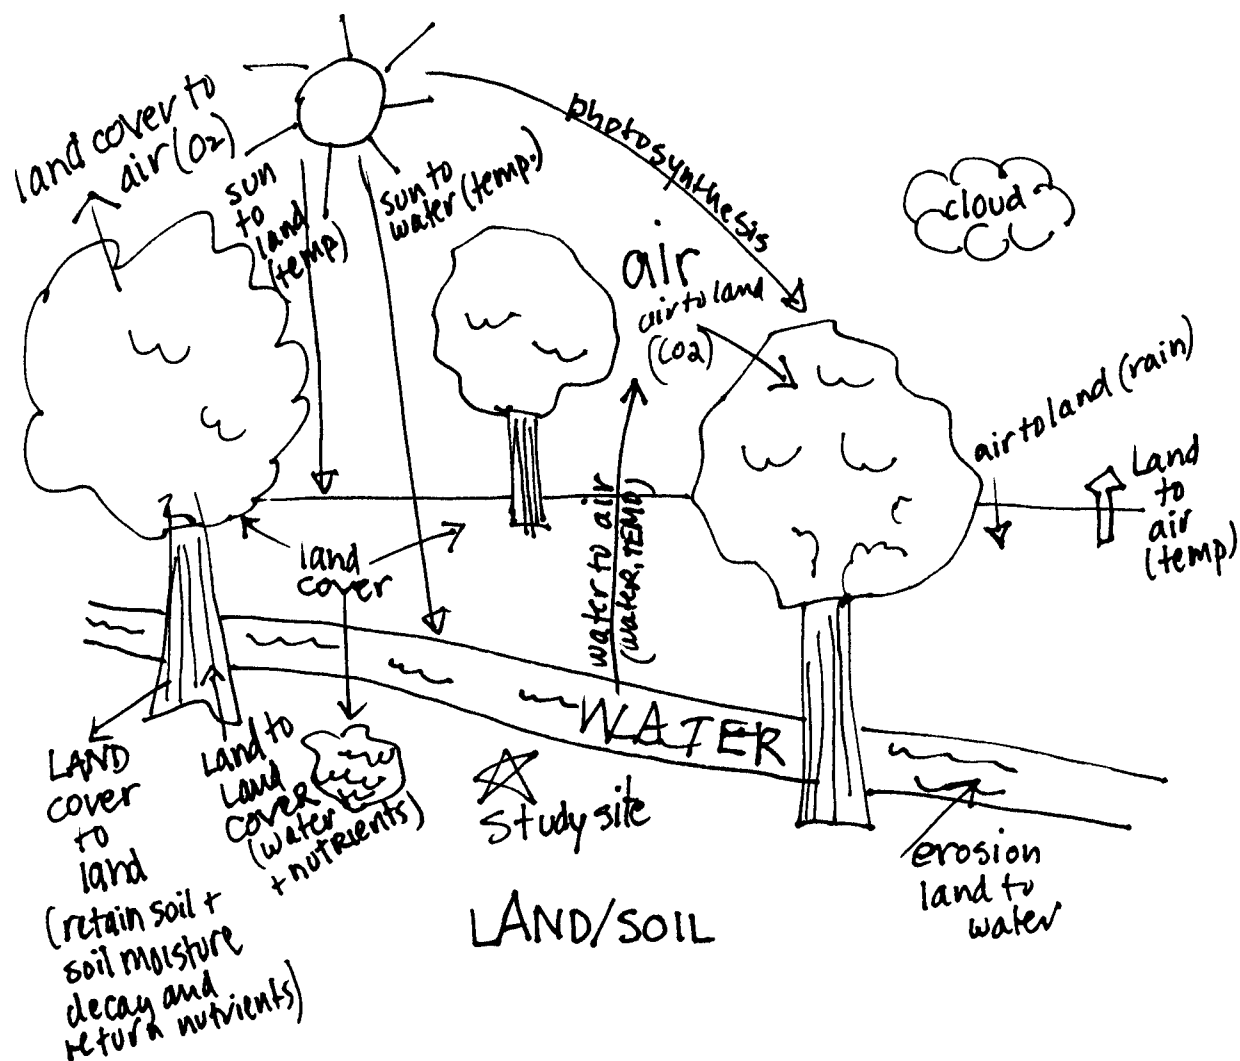 land cover to
air (O2)
sun
to
land
(temp)
sun to
water (temp.)
photosynthesis
cloud
air
air to land
(CO2)
air to land (rain)
Land
to
air
(temp)
land
cover
water to air
(WATER, TEMP)
WATER
LAND
cover
to
land
(retain soil +
soil moisture
decay and
return nutrients)
Land to
Land
COVER
(water
+ nutrients)
study site
erosion
land to
water
LAND/SOIL